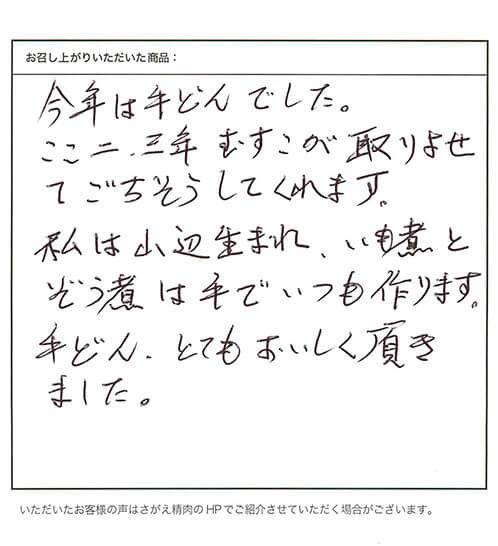 お召し上がりいただいた商品：
今年は牛どんでした。
ここ二、三年むすこが取りよせ
てごちそうしてくれます。
私は山辺生まれ、いも煮と
ぞう煮は牛でいつも作ります。
牛どん、とてもおいしく頂き
ました。
いただいたお客様の声はさがえ精肉のHPでご紹介させていただく場合がございます。